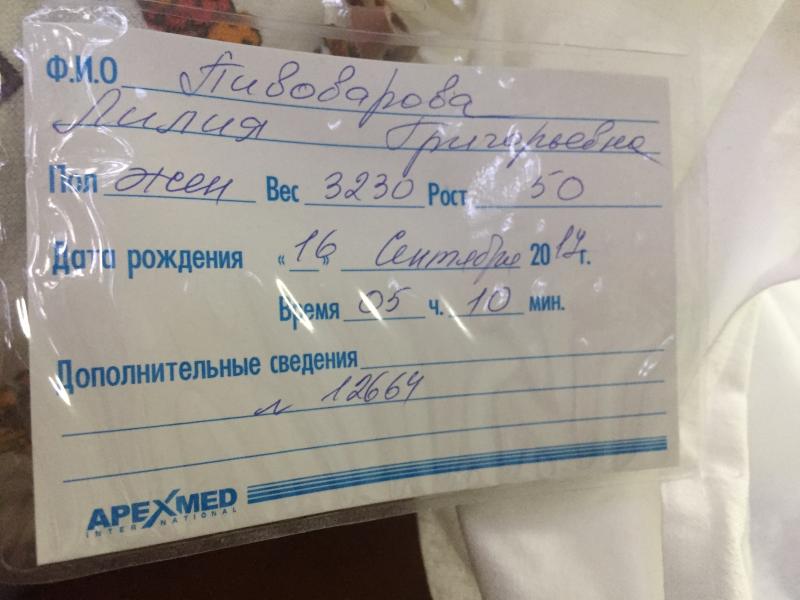 Ф.И.О Пивоварова
Лилия Григорьевна
Пол жен Вес 3230 Рост 50
Дата рождения «16» Сентября 2017г.
Время 05 ч. 10 мин.
Дополнительные сведения
№ 12664
APEXMED
INTERNATIONAL